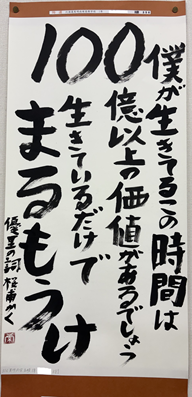 僕が生きてるこの時間は
100億以上の価値があるでしょう
生きているだけで
まるもうけ
優里の詞